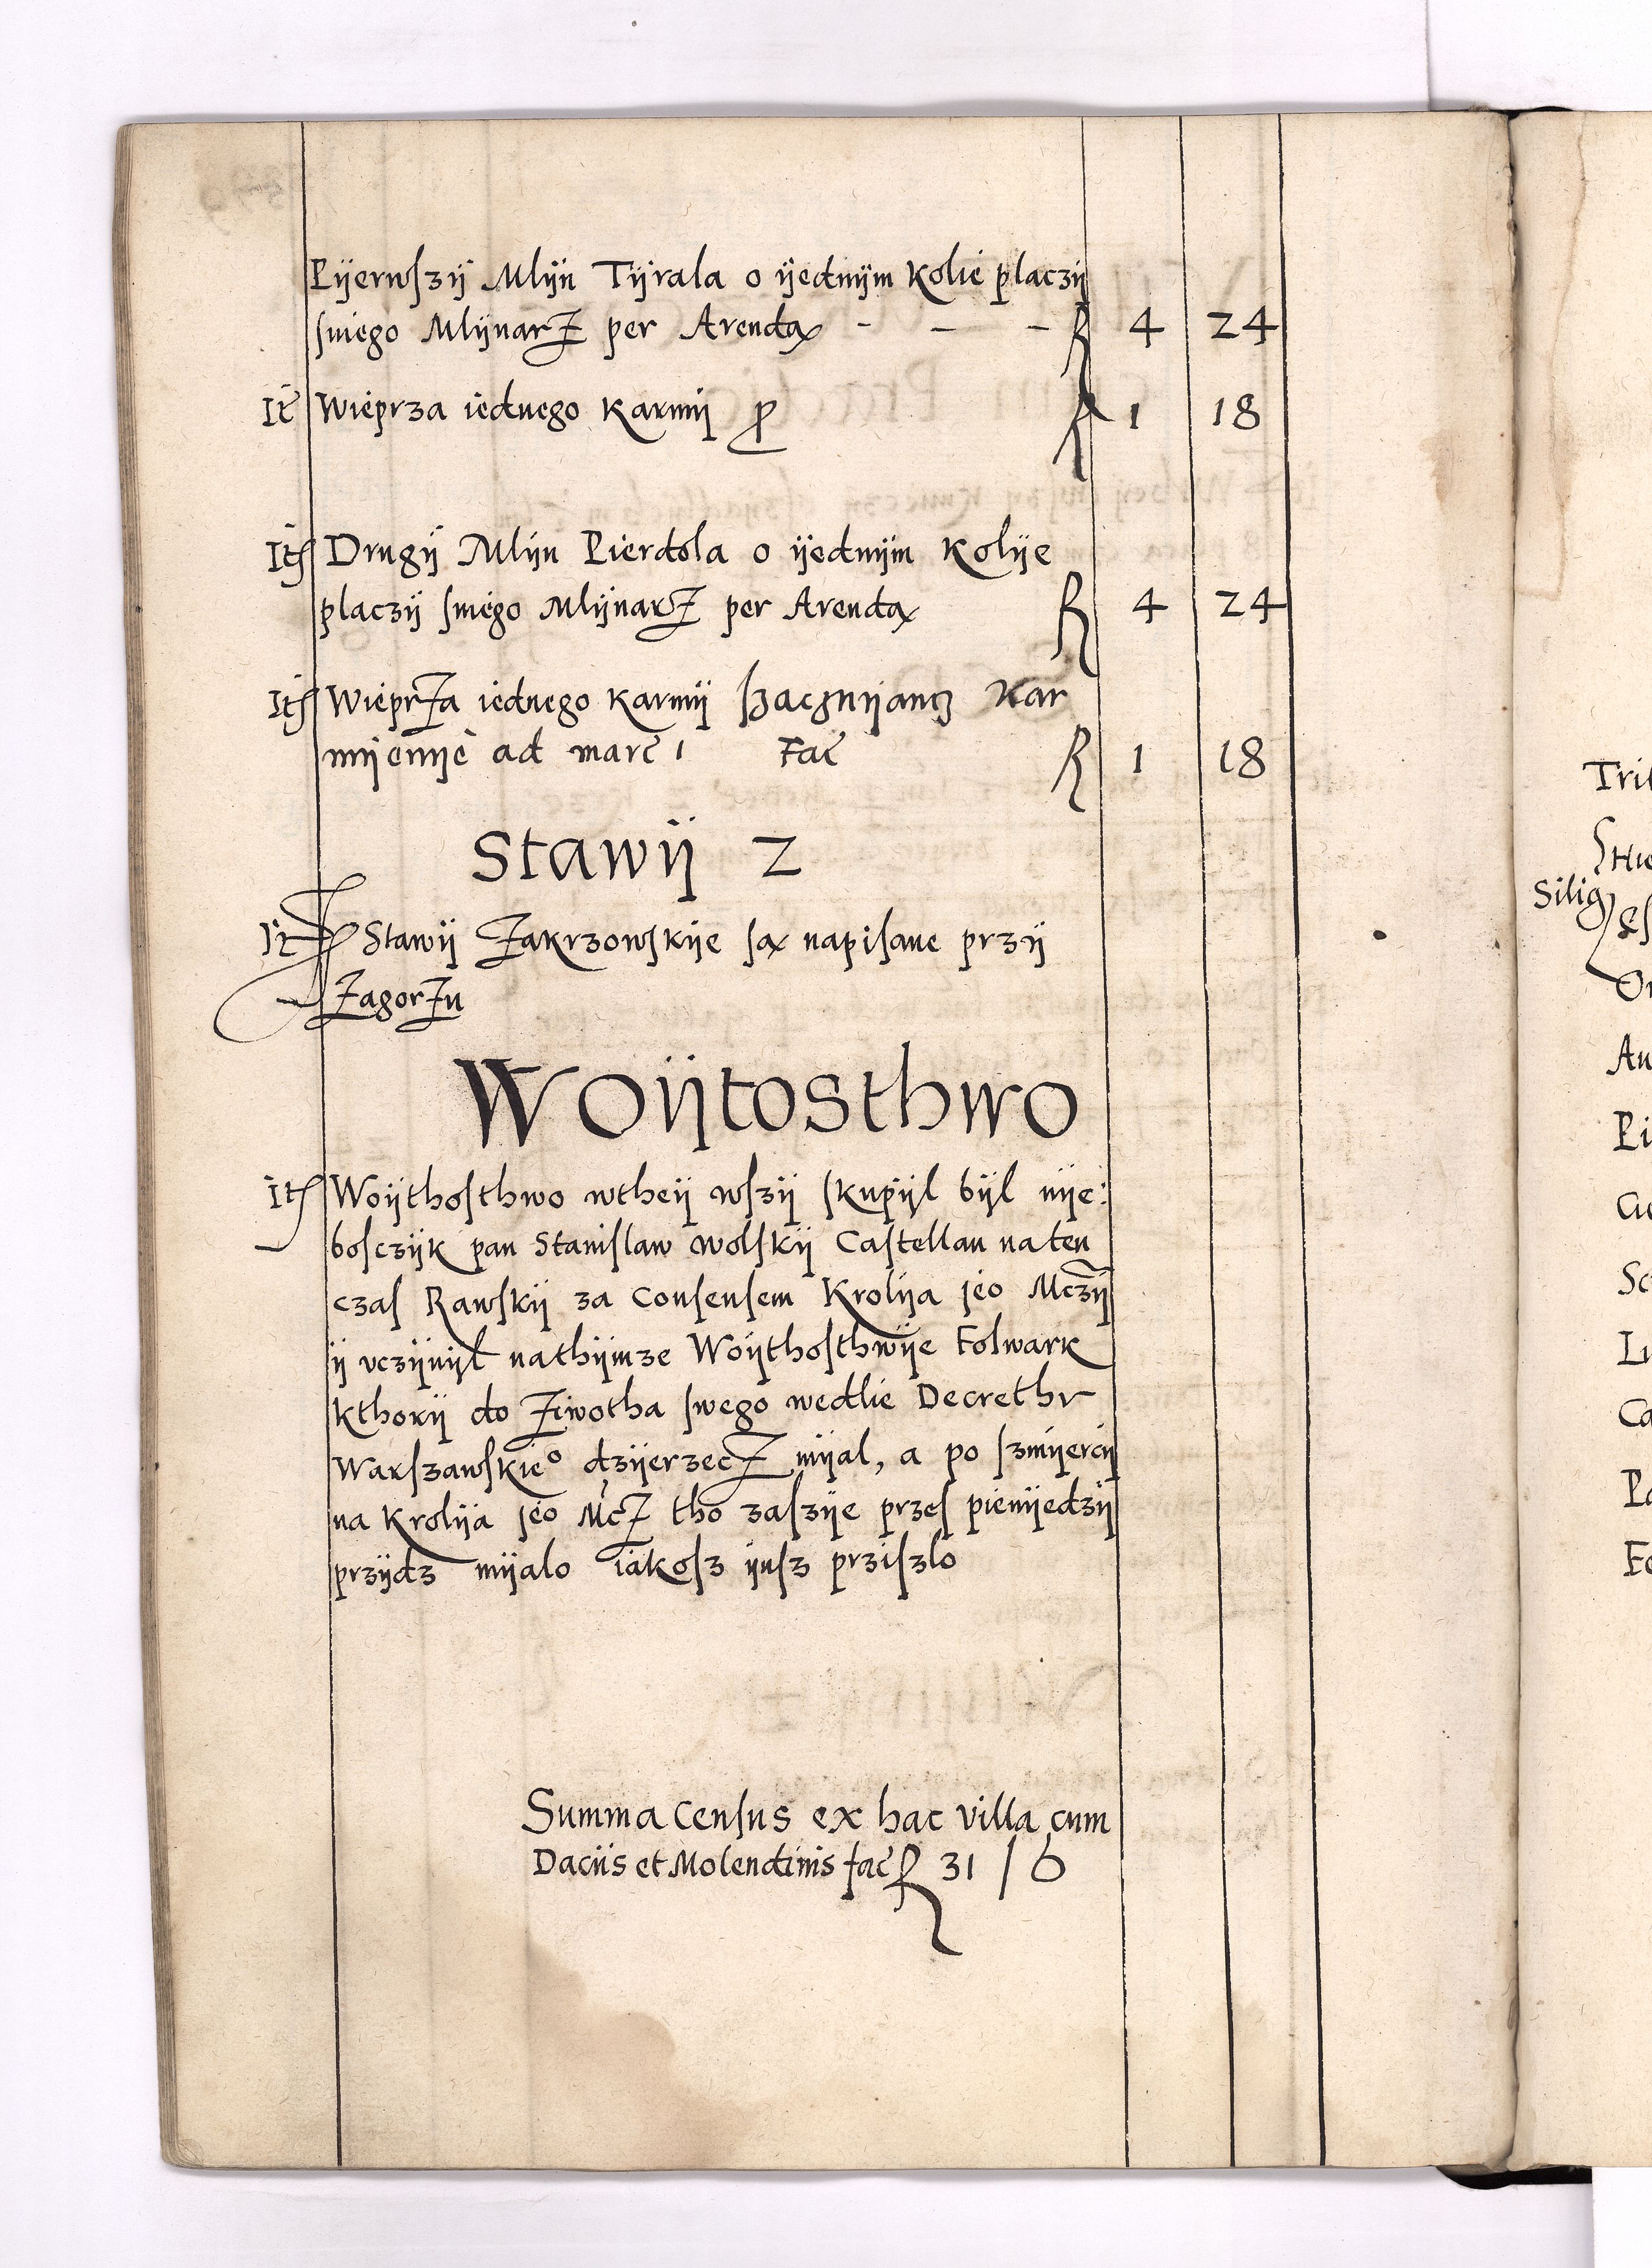 Pÿerwſzÿ Mlÿn Tÿrala o ÿednÿm Kolie placzÿ
ſniego Mlÿnarz per Arendą - - - R 4 24
It̃ Wieprza iednego Karmÿ ꝓ R 1 18
Itꝭ Drugÿ Mlÿn Pierdola o ÿednÿm Kolÿe
placzÿ ſniego Mlÿnarz per Arendą R 4 24
Itꝭ Wieprza iednego Karmÿ ſzacznÿancz Kar
mÿenÿe ad marc̃ 1 Fac̃ R 1 18
Stawÿ 2
It̃ Stawÿ Zakrzowſkÿe ſą napiſane przÿ
Zagorzu
Woÿtosthwo
Itꝭ Woÿthoſthwo wtheÿ wſzÿ ſkupÿl bÿl nÿe:
boſczÿk pan Staniſlaw Wolſkÿ Caſtellan na ten
czaſ Rawſkÿ za Conſenſem Krolÿa jeo Mczÿ
ÿ vczÿnÿl nathÿmze Woÿthoſthwÿe Folwark
Kthorÿ do Ziwotha ſwego wedlie Decrethv
Warſzawſkieº dzÿerzecz mÿal, a po ſzmÿerczÿ
na Krolÿa jeo Mcz tho zaſzÿe przeſ pienÿedzÿ
przÿdz mÿalo iakoſz ÿuſz przÿſzlo
Summa Cenſus ex hac villa cum
Daciis et Molendinis fac̃ R 31 / 6
Tri
Silig
Au
Pi
Sc
Ca